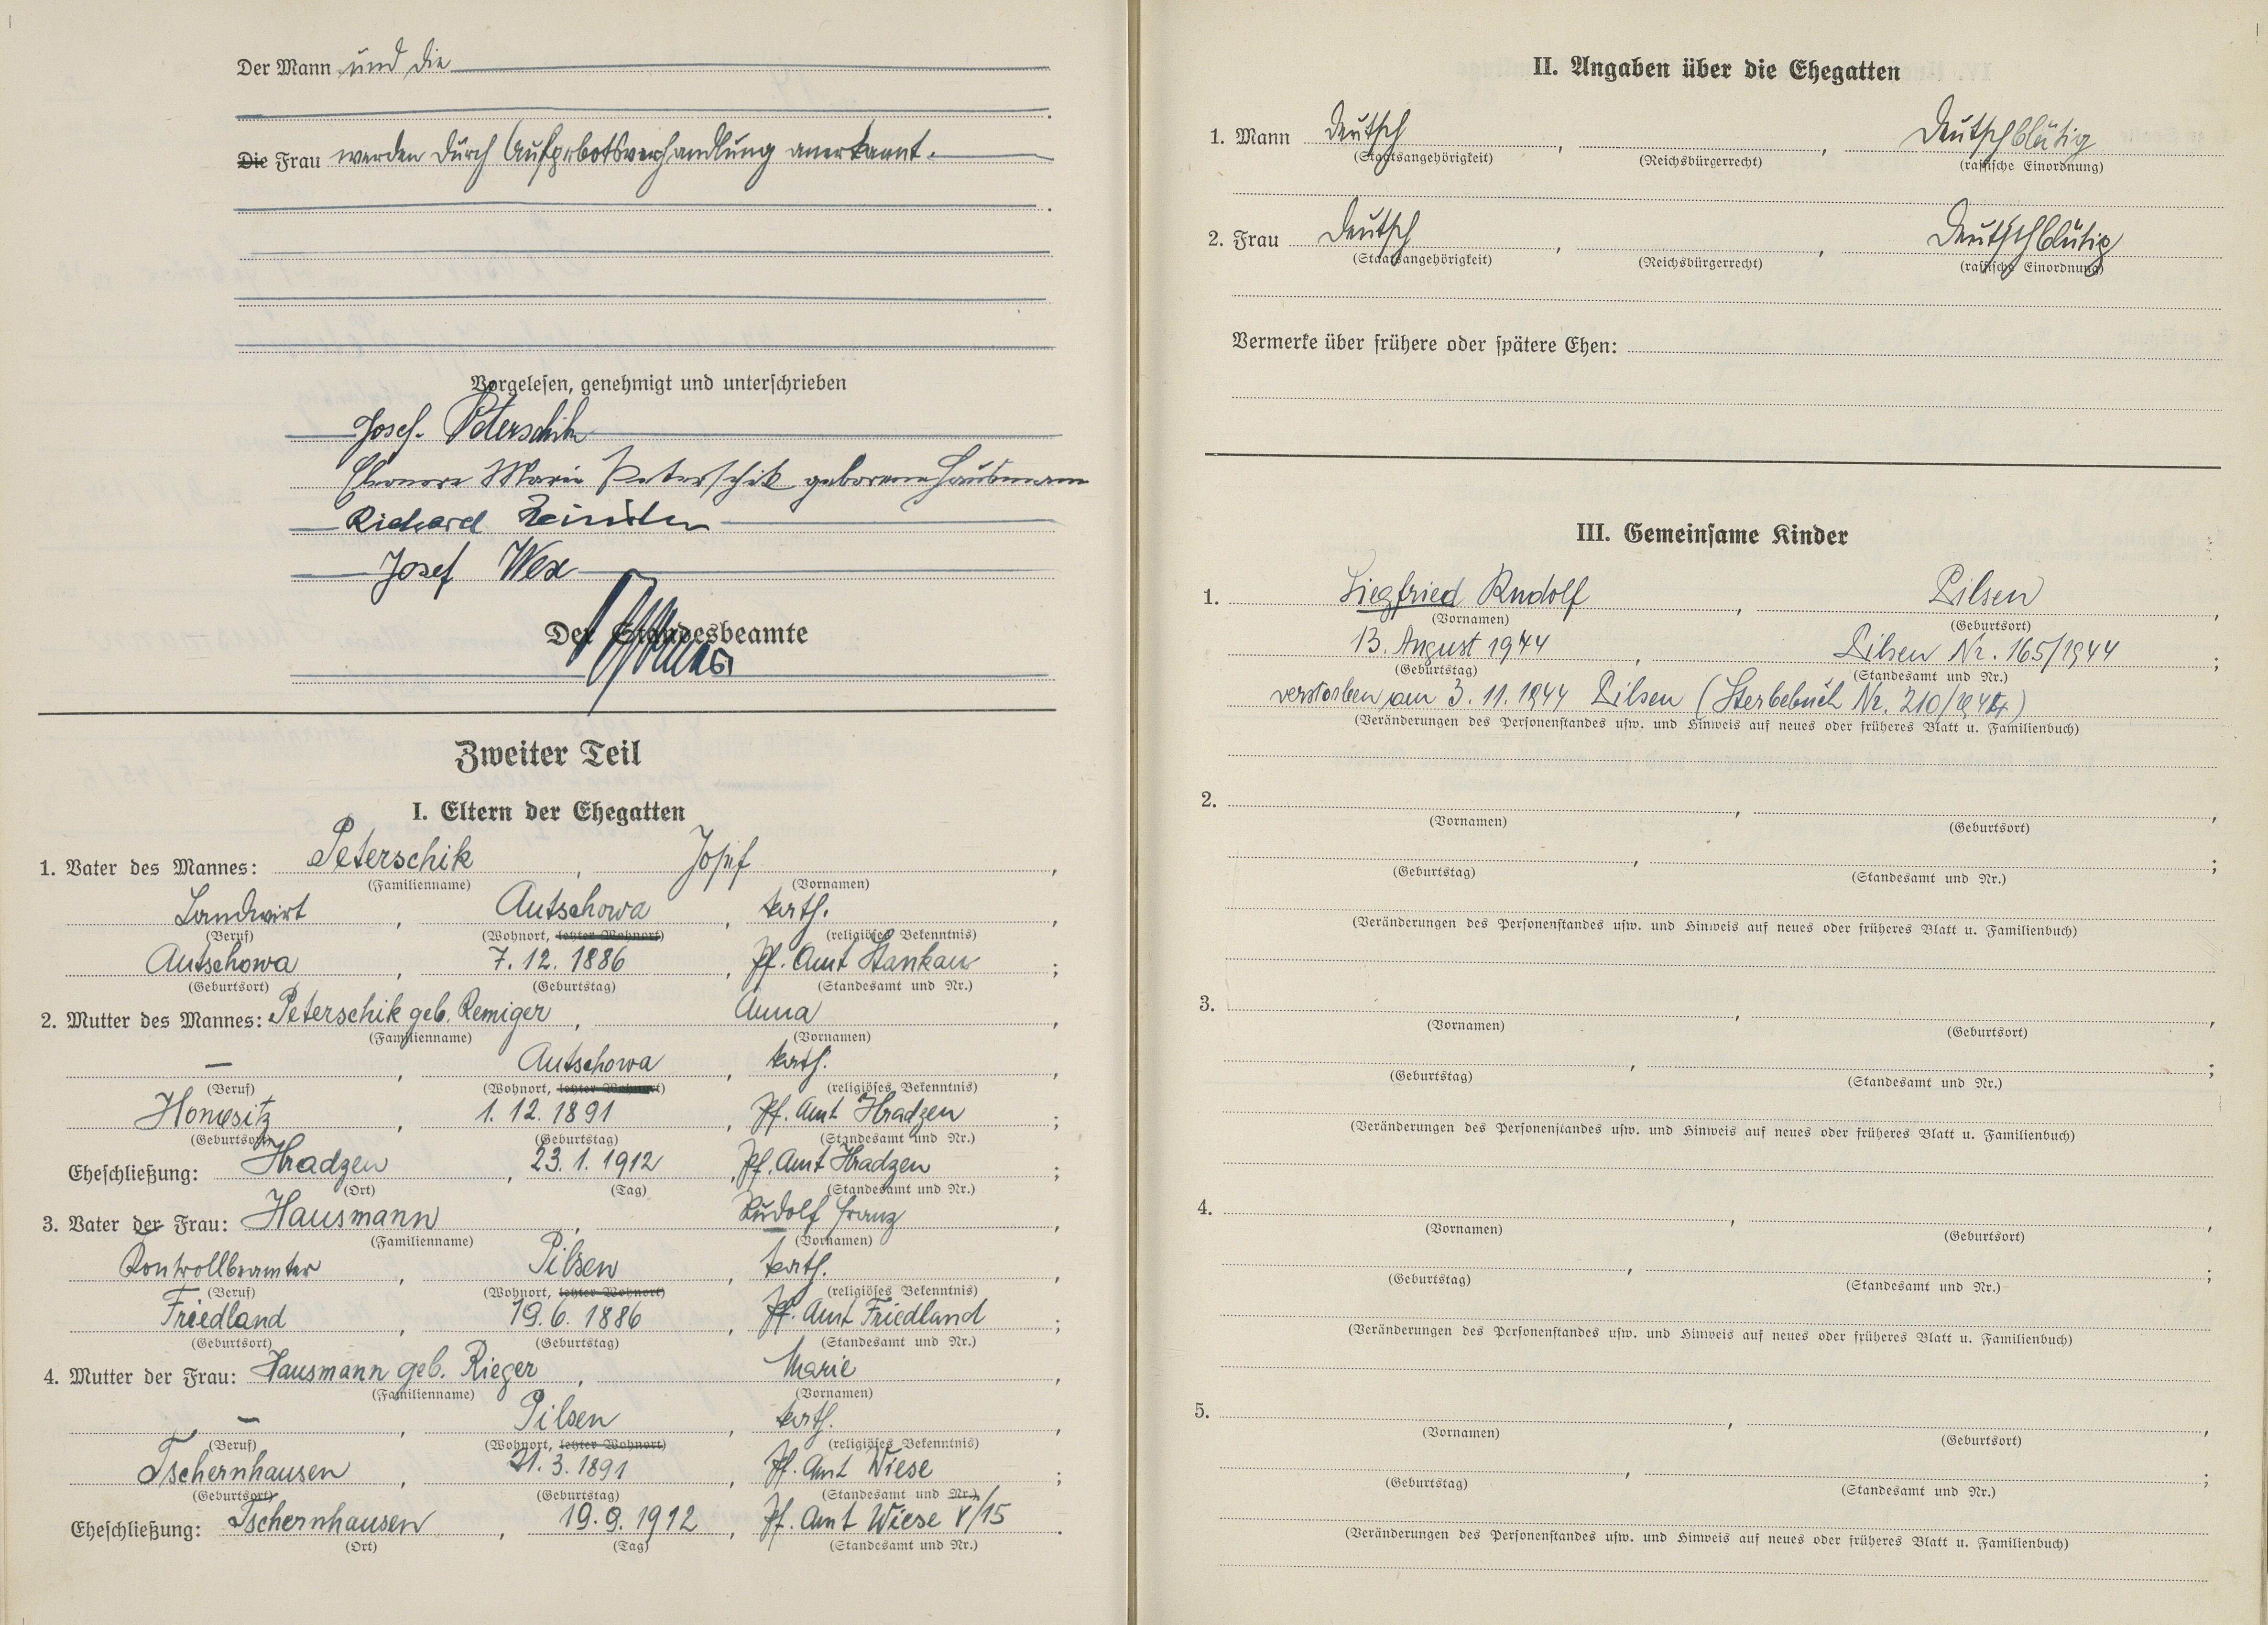 Der Mann und die
Die Frau werden durch Aufgebotsverhandlung anerkannt.
Vorgelesen, genehmigt und unterschrieben
Josef Peterschik
Eleonore Marie Peterschik geborene Hausmann
Richard
Josef Wex
Der Standesbeamte
Zweiter Teil
I. Eltern der Ehegatten
1. Vater des Mannes: Peterschik, Josef,
(Familienname) (Vornamen)
Landwirt, Autschowa, kath.,
(Beruf) (Wohnort, letzter Wohnort) (religiöses Bekenntnis)
Autschowa, 7. 12. 1886, Pf. Amt Stankau;
(Geburtsort) (Geburtstag) (Standesamt und Nr.)
2. Mutter des Mannes: Peterschik geb. Remiger, Anna,
(Familienname) (Vornamen)
—, Autschowa, kath.,
(Beruf) (Wohnort, letzter Wohnort) (religiöses Bekenntnis)
Honositz, 1. 12. 1891, Pf. Amt Hradzen;
(Geburtsort) (Geburtstag) (Standesamt und Nr.)
Eheschließung: Hradzen, 23. 1. 1912, Pf. Amt Hradzen;
(Ort) (Tag) (Standesamt und Nr.)
3. Vater der Frau: Hausmann, Rudolf Franz,
(Familienname) (Vornamen)
Kontrollbeamter, Pilsen, kath.,
(Beruf) (Wohnort, letzter Wohnort) (religiöses Bekenntnis)
Friedland, 19. 6. 1886, Pf. Amt Friedland;
(Geburtsort) (Geburtstag) (Standesamt und Nr.)
4. Mutter der Frau: Hausmann geb. Rieger, Marie,
(Familienname) (Vornamen)
—, Pilsen, kath.,
(Beruf) (Wohnort, letzter Wohnort) (religiöses Bekenntnis)
Tschernhausen, 21. 3. 1891, Pf. Amt Wiese;
(Geburtsort) (Geburtstag) (Standesamt und Nr.)
Eheschließung: Tschernhausen, 19. 9. 1912, Pf. Amt Wiese V/15.
(Ort) (Tag) (Standesamt und Nr.)
II. Angaben über die Ehegatten
1. Mann Deutsch, , Deutschblütig
(Staatsangehörigkeit) (Reichsbürgerrecht) (rassische Einordnung)
2. Frau Deutsch, , Deutschblütig
(Staatsangehörigkeit) (Reichsbürgerrecht) (rassische Einordnung)
Vermerke über frühere oder spätere Ehen:
III. Gemeinsame Kinder
1. Siegfried Rudolf, Pilsen,
(Vornamen) (Geburtsort)
13. August 1944, Pilsen Nr. 165/1944;
(Geburtstag) (Standesamt und Nr.)
verstorben am 3. 11. 1944 Pilsen (Sterbebuch Nr. 210/1944)
(Veränderungen des Personenstandes usw. und Hinweis auf neues oder früheres Blatt u. Familienbuch)
2. , ,
(Vornamen) (Geburtsort)
, ;
(Geburtstag) (Standesamt und Nr.)
(Veränderungen des Personenstandes usw. und Hinweis auf neues oder früheres Blatt u. Familienbuch)
3. , ,
(Vornamen) (Geburtsort)
, ;
(Geburtstag) (Standesamt und Nr.)
(Veränderungen des Personenstandes usw. und Hinweis auf neues oder früheres Blatt u. Familienbuch)
4. , ,
(Vornamen) (Geburtsort)
, ;
(Geburtstag) (Standesamt und Nr.)
(Veränderungen des Personenstandes usw. und Hinweis auf neues oder früheres Blatt u. Familienbuch)
5. , ,
(Vornamen) (Geburtsort)
, ;
(Geburtstag) (Standesamt und Nr.)
(Veränderungen des Personenstandes usw. und Hinweis auf neues oder früheres Blatt u. Familienbuch)